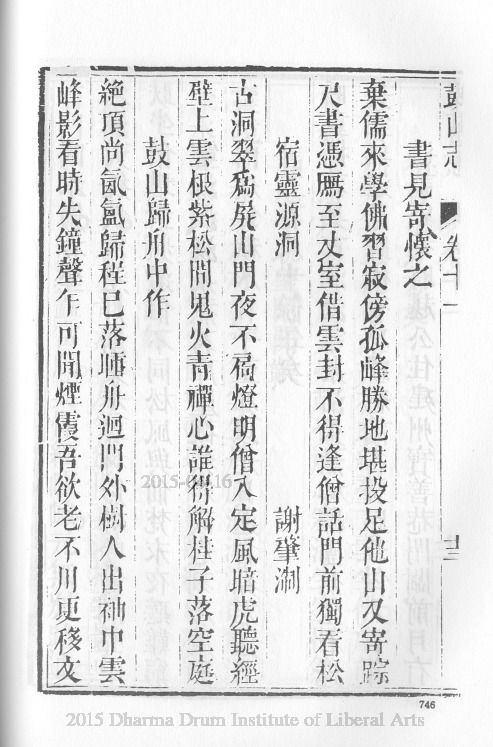 鼓山志 卷十一 十三
書見寄懷之
棄儒來學佛習寂傍孤峰勝地堪投足他山又寄踪
尺書憑鴈至丈室借雲封不得逢僧話門前獨看松
宿靈源洞 謝肇淛
古洞翠為屏山門夜不扃燈明僧入定風暗虎聽經
壁上雲根紫松間鬼火青禪心誰得解桂子落空庭
鼓山歸舟中作
絶頂尚氤氳歸程已落曛舟迴門外樹人出袖中雲
峰影看時失鐘聲乍可聞煙霞吾欲老不用更移文
2015-04-16
746
2015 Dharma Drum Institute of Liberal Arts